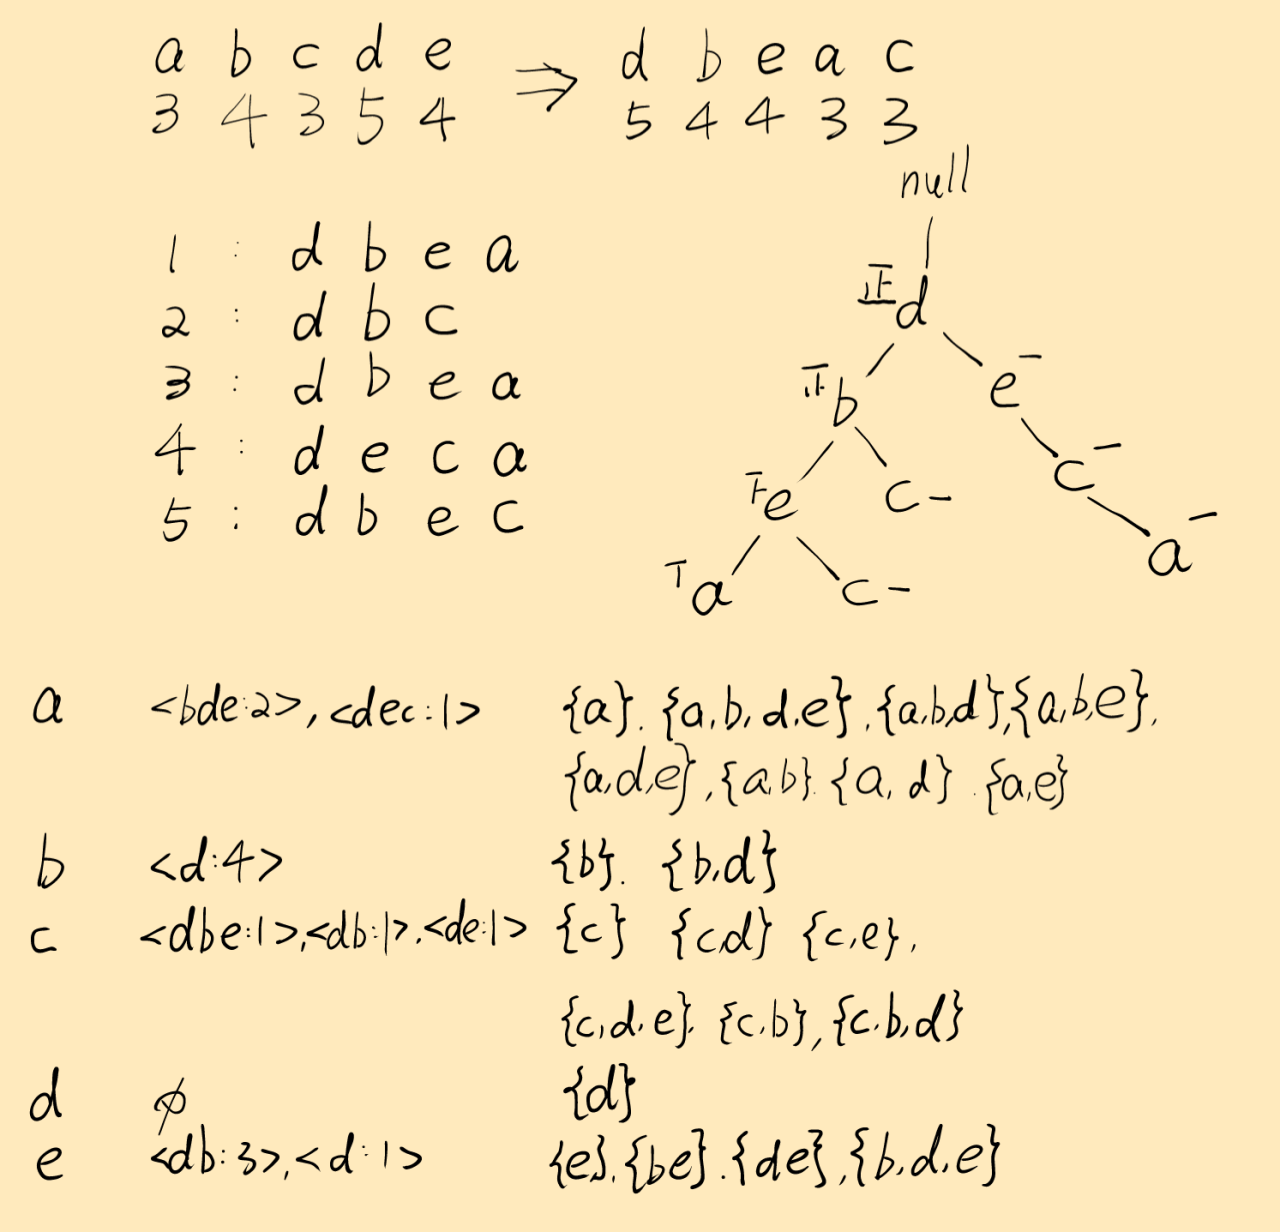 a b c d e ⇒ d b e a c
3 4 3 5 4 5 4 4 3 3
null
1 : d b e a
2 : d b c
3 : d b e a
4 : d e c a
5 : d b e c
正 d
b e −
e c − c −
a c − a −
a <bde:2>, <dec:1> {a}. {a,b,d,e}, {a,b,d}, {a,b,e},
{a,d,e}, {a,b}. {a,d}. {a,e}
b <d:4> {b}. {b,d}
c <dbe:1>, <db:1>, <de:1> {c} {c,d} {c,e},
{c,d,e}. {c.b}, {c.b,d}
d ϕ {d}
e <db:3>, <d:1> {e}. {be}. {de}, {b,d,e}